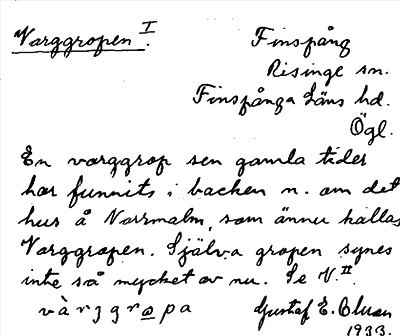 Varggropen I.
Finspång
Risinge sn.
Finspånga Läns hd.
Ögl.
En varggrop sen gamla tider
har funnits i backen n. om det
hus å Norrmalm, som ännu kallas
Varggropen. Själva gropen synes
inte så mycket av nu. Se V. II
Gustaf E.
1933.